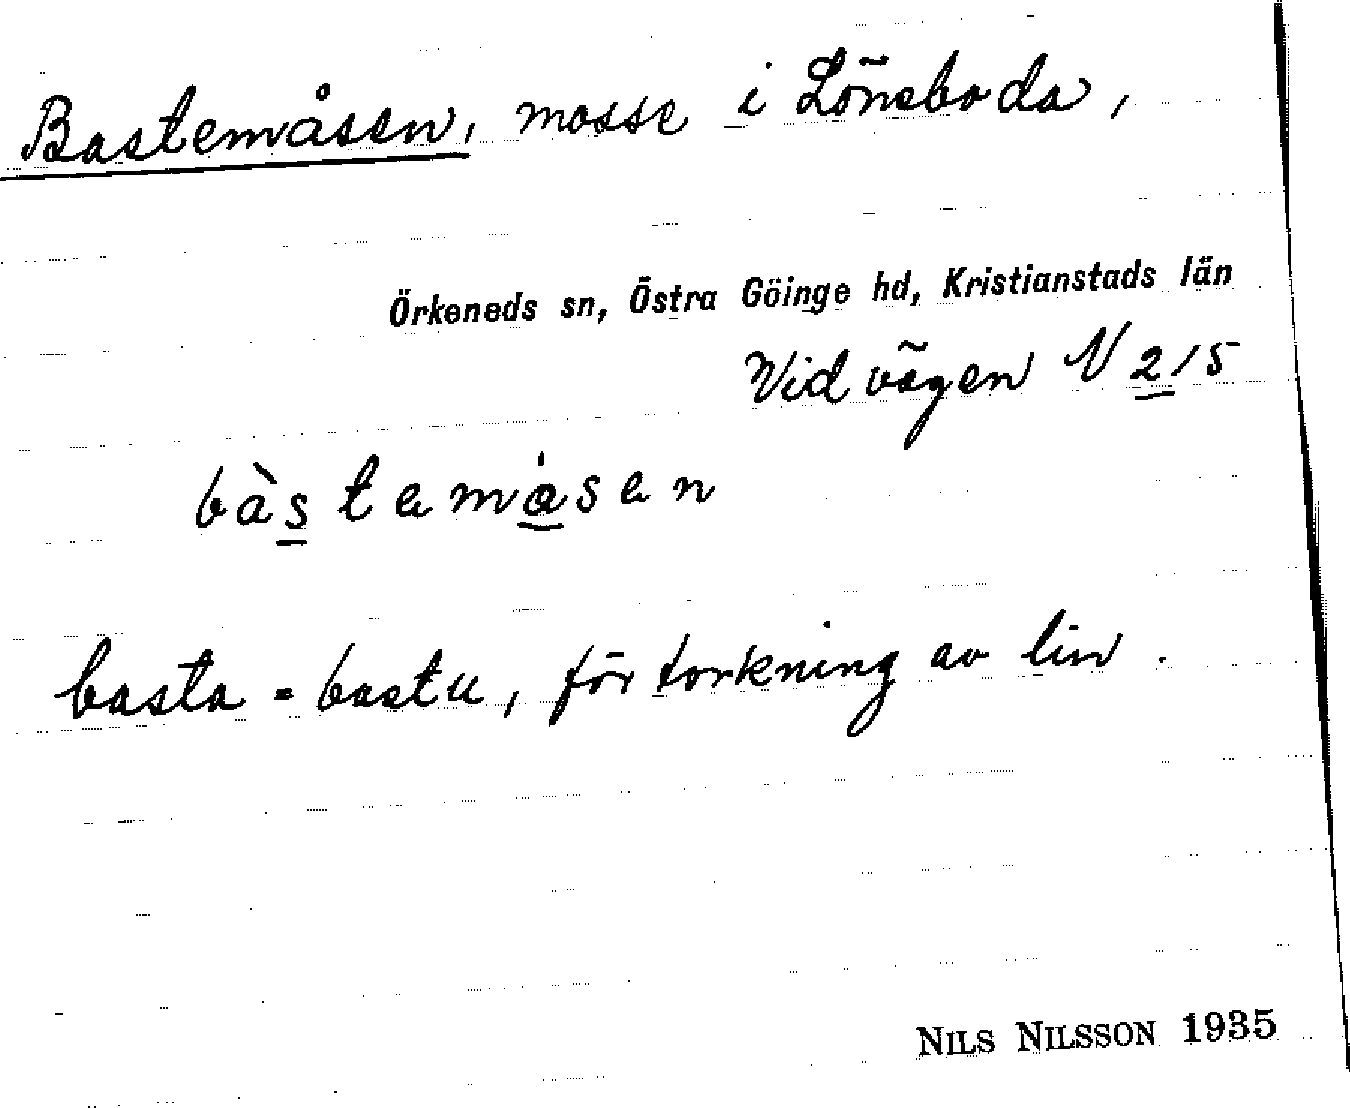 Bastemåsen, mosse i Lönsboda,
Örkeneds sn, Östra Göinge hd, Kristianstads län
Vid vägen N 2/5
bàstemåsen
basta = bastu, för torkning av lin.
NILS NILSSON 1935